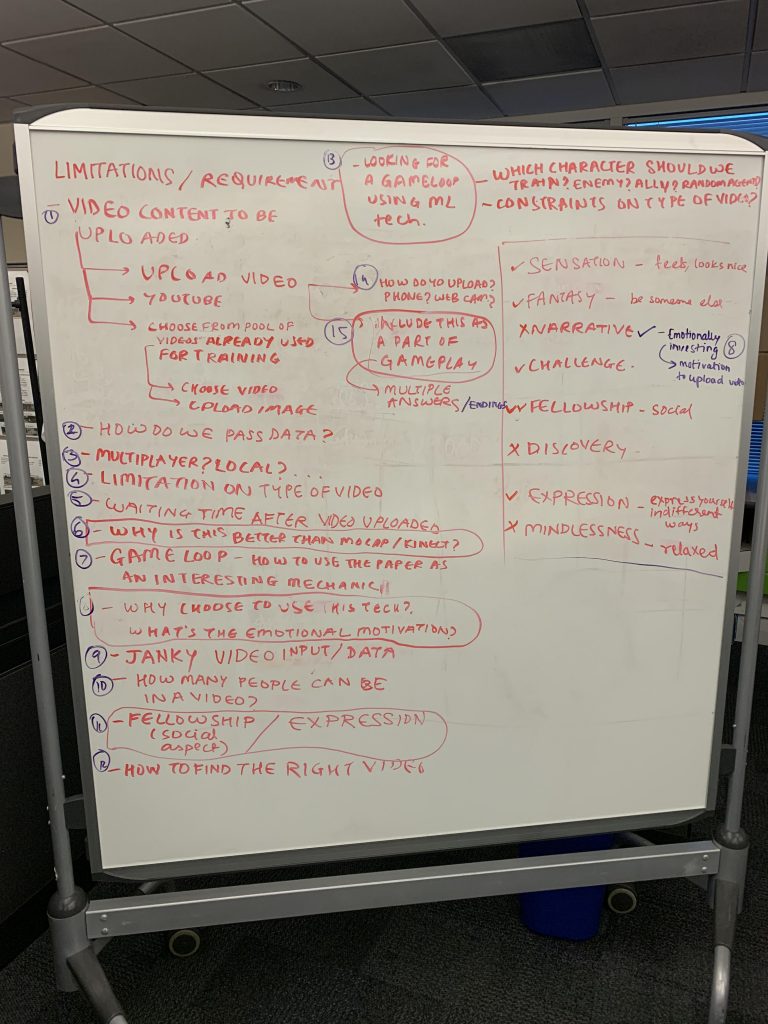 LIMITATIONS / REQUIREMENT
① - VIDEO CONTENT TO BE
UPLOADED.
→ UPLOAD VIDEO
→ YOUTUBE
→ CHOOSE FROM POOL OF
VIDEOS ALREADY USED
FOR TRAINING
→ CHOOSE VIDEO
→ UPLOAD IMAGE
② - HOW DO WE PASS DATA?
③ - MULTIPLAYER? LOCAL? ...
④ - LIMITATION ON TYPE OF VIDEO
⑤ - WAITING TIME AFTER VIDEO UPLOADED
⑥ - WHY IS THIS BETTER THAN MOCAP / KINECT?
⑦ - GAME LOOP - HOW TO USE THE PAPER AS
AN INTERESTING MECHANIC
- WHY CHOOSE TO USE THIS TECH?
WHAT'S THE EMOTIONAL MOTIVATION?
⑨ - JANKY VIDEO INPUT / DATA
⑩ - HOW MANY PEOPLE CAN BE
IN A VIDEO?
⑪ - FELLOWSHIP / EXPRESSION
(social
aspect)
⑫ - HOW TO FIND THE RIGHT VIDEO
⑬ - LOOKING FOR
A GAMELOOP
USING ML
tech.
- WHICH CHARACTER SHOULD WE
TRAIN? ENEMY? ALLY? RANDOM AGENT?
- CONSTRAINTS ON TYPE OF VIDEO?
HOW DO YO UPLOAD?
PHONE? WEB CAM?
⑮ INCLUDE THIS AS
A PART OF
GAMEPLAY
→ MULTIPLE
ANSWERS / ENDINGS
✓ SENSATION - feels, looks nice
✓ FANTASY - be someone else
X NARRATIVE ✓ - Emotionally
investing ⑧
→ motivation
to upload
✓ CHALLENGE.
✓✓ FELLOWSHIP - social
X DISCOVERY
✓ EXPRESSION - express yourself
in different
ways
X MINDLESSNESS - relaxed